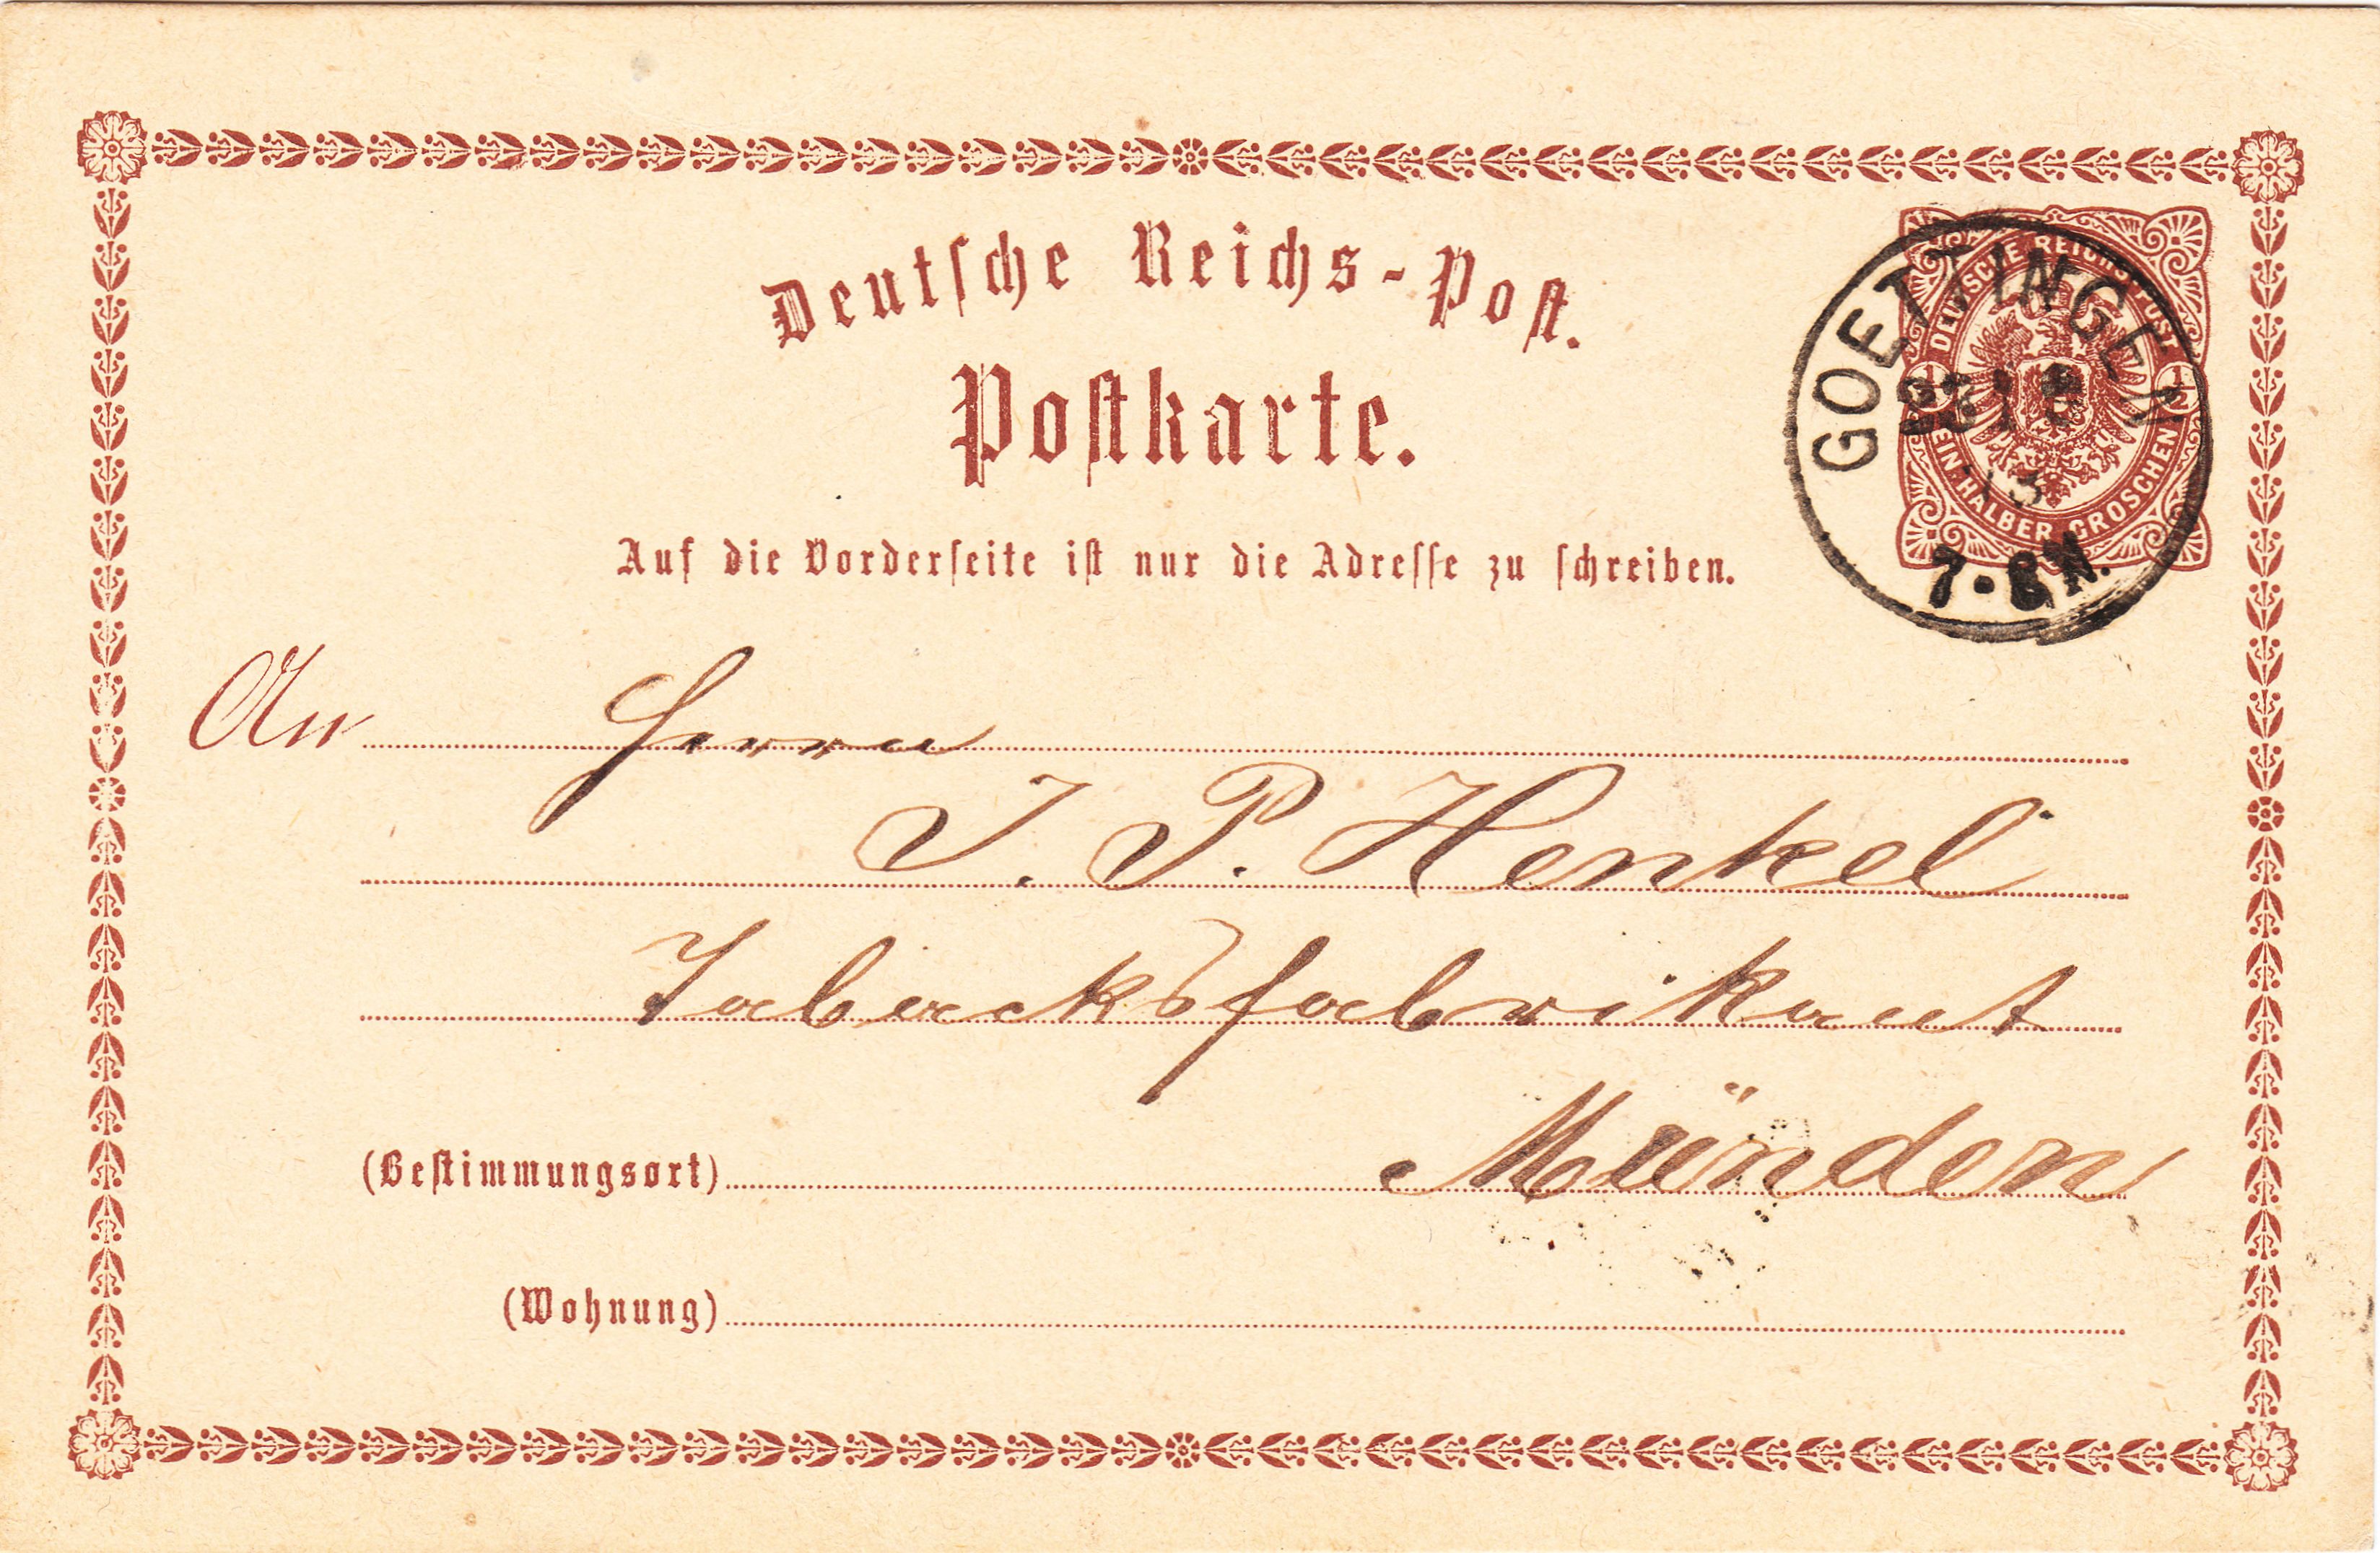 Deutsche Reichs-Post.
Postkarte.
DEUTSCHE REICHS-POST
1/2 1/2
EIN HALBER GROSCHEN
GOETTINGEN
7-8 N.
Auf die Vorderseite ist nur die Adresse zu schreiben.
An Herrn
J. P. Henkel
Tabacksfabrikant
(Bestimmungsort) Münden
(Wohnung)